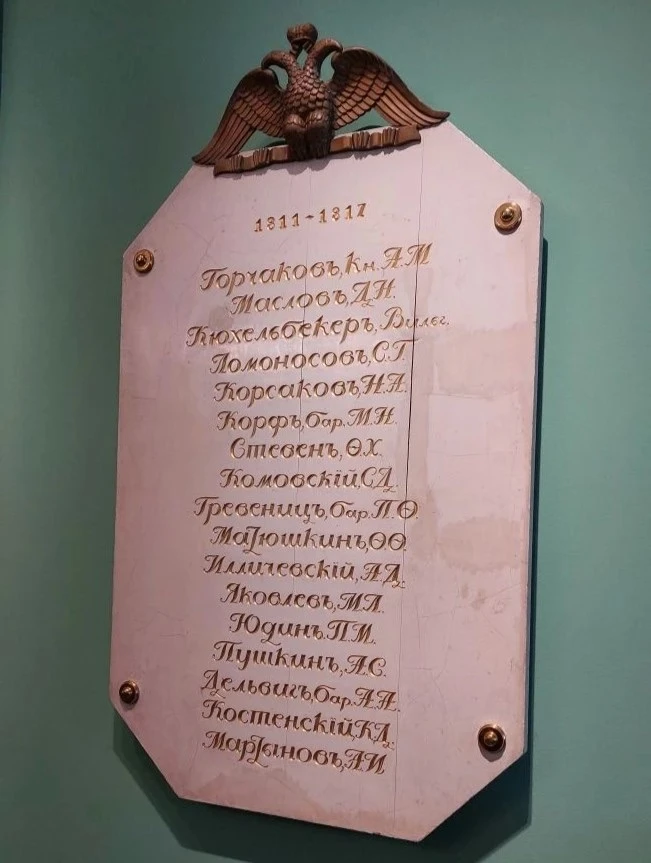 1811-1817
Горчаковъ, Кн. А.М
Масловъ, Д.Н.
Кюхельбекеръ, Вильг.
Ломоносовъ, С.Г.
Корсаковъ, Н.А.
Корфъ, бар. М.Н.
Стевенъ, Ѳ.Х.
Комовскій, С.Д.
Гревеницъ, бар. П.Ѳ.
Матюшкинъ, Ѳ.Ѳ.
Илличевскій, А.Д.
Яковлевъ, М.Л.
Юдинъ П.М.
Пушкинъ, А.С.
Дельвигъ, бар. А.А.
Костенскій, К.Д.
Мартыновъ, А.И